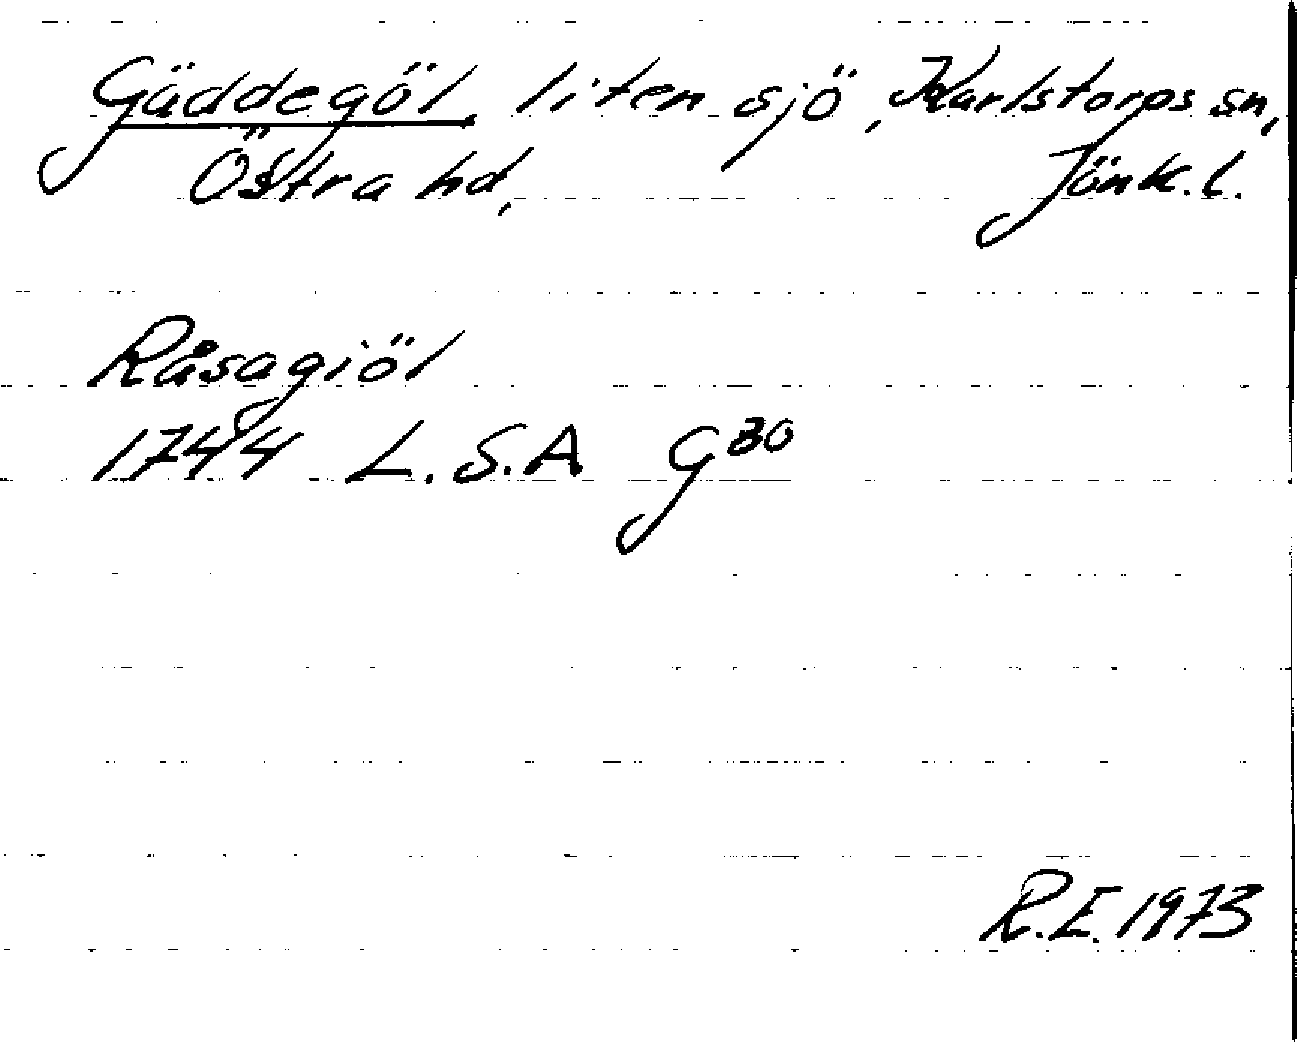 Gäddegöl, liten sjö, Karlstorps sn,
Östra hd, Jönk. l.
Råsagiöl
1744 L.S.A G30
R.E. 1973